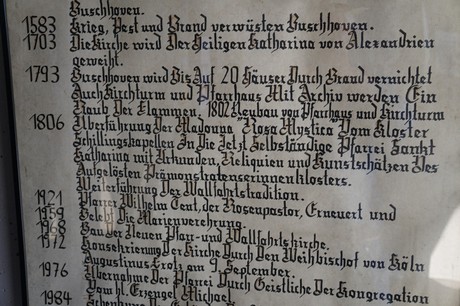 Buschhoven.
1583 Krieg, Pest und Brand verwüsten Buschhoven.
1703 Die Kirche wird Der Heiligen Katharina von Alexandrien
geweiht.
1793 Buschhoven wird Bis Auf 20 Häuser Durch Brand vernichtet
Auch Kirchturm und Pfarrhaus Mit Archiv werden Ein
Raub Der Flammen, 1802 Neubau von Pfarrhaus und Kirchturm
1806 Überführung Der Madonna "Rosa Mystica" Vom Kloster
Schillingskapellen In Die Jetzt Selbständige Pfarrei Sankt
Katharina mit Urkunden, Reliquien und Kunstschätzen Des
Aufgelösten Prämonstratenserinnenklosters.
Weiterführung Der Wallfahrtstradition.
1921 Pfarrer Wilhelm Tent, der Rosenpastor, Erneuert und
1959 Belebt Die Marienverehrung.
1968 Bau der Neuen Pfarr- und Wallfahrtskirche.
1972 Konsekrierung Der Kirche Durch Den Weihbischof von Köln
Augustinus Frotz am 9. September.
1976 Übernahme Der Pfarrei Durch Geistliche Der Kongregation
Vom hl. Erzengel Michael.
1984